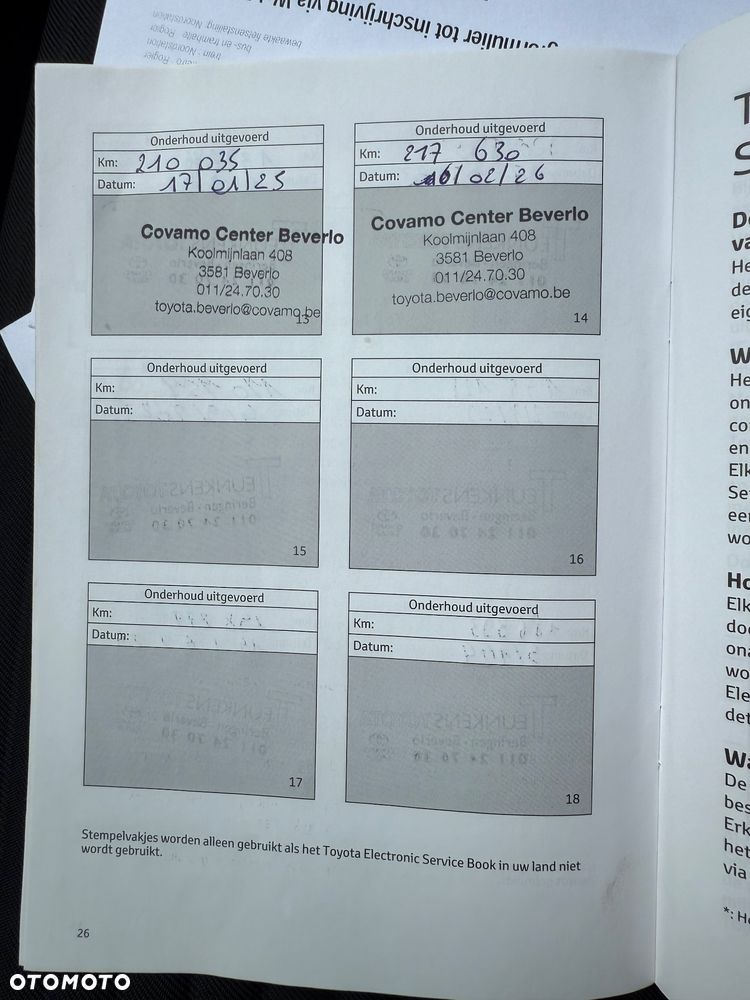 formulier tot inschrijving via W
bewaakte fietsenstalling: Noordstation
bus- en tramhalte Rogier
trein Noordstation
Rogier
Onderhoud uitgevoerd
Km: 210 035
Datum: 17/01/25
Covamo Center Beverlo
Koolmijnlaan 408
3581 Beverlo
011/24.70.30
toyota.beverlo@covamo.be
13
Onderhoud uitgevoerd
Km: 217 630
Datum: 16/02/26
Covamo Center Beverlo
Koolmijnlaan 408
3581 Beverlo
011/24.70.30
toyota.beverlo@covamo.be
14
Onderhoud uitgevoerd
Km:
Datum:
15
Onderhoud uitgevoerd
Km:
Datum:
16
Onderhoud uitgevoerd
Km:
Datum:
17
Onderhoud uitgevoerd
Km:
Datum:
18
Stempelvakjes worden alleen gebruikt als het Toyota Electronic Service Book in uw land niet
wordt gebruikt.
26
T
S
D
va
He
de
eig
W
He
on
co
en
Elk
Se
ee
wo
Ho
Elk
doo
ona
wo
Ele
det
Wa
De
bes
Erk
het
via
*: He
OTOMOTO